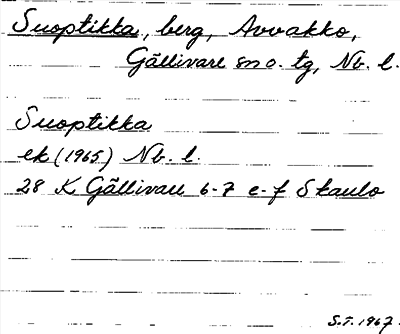 Suoptikka, berg, Avvakko,
Gällivare sn o. tg, Nb. l.
Suoptikka
ek (1965) Nb. l.
28 K Gällivare 6-7 e-f Skaulo
S.T. 1967.